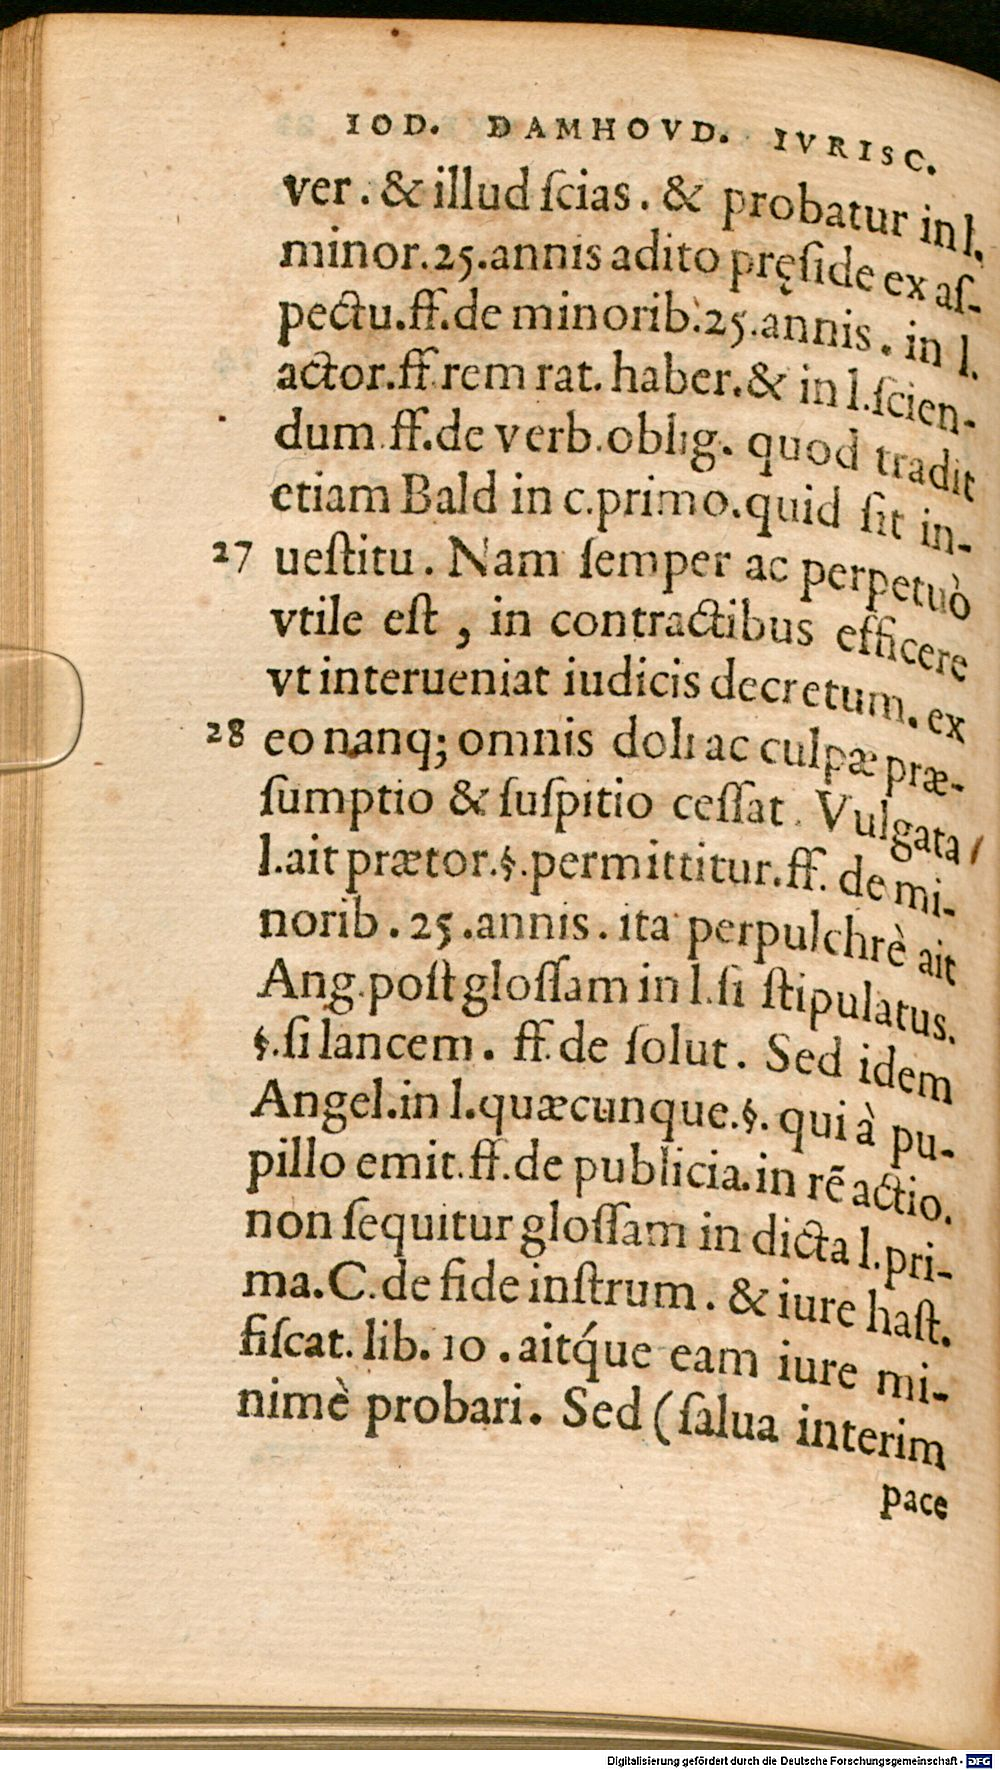 IOD. DAMHOVD. IVRISC.
ver. & illud ſcias. & probatur in l.
minor. 25. annis adito pręſide ex aſ-
pectu. ff. de minorib. 25. annis. in l.
actor. ff. rem rat. haber. & in l. ſcien-
dum ff. de verb. oblig. quod tradit
etiam Bald in c. primo. quid ſit in-
27 ueſtitu. Nam ſemper ac perpetuò
vtile eſt, in contractibus efficere
vt interueniat iudicis decretum. ex
28 eo nanq; omnis doli ac culpæ præ-
ſumptio & ſuſpitio ceſſat. Vulgata
l. ait prætor. §. permittitur. ff. de mi-
norib. 25. annis. ita perpulchrè ait
Ang. poſt gloſſam in l. ſi ſtipulatus.
§. ſi lancem. ff. de ſolut. Sed idem
Angel. in l. quæcunque. §. qui à pu-
pillo emit. ff. de publicia. in rē actio.
non ſequitur gloſſam in dicta l. pri-
ma. C. de fide inſtrum. & iure haſt.
fiſcat. lib. 10. aitq́ue eam iure mi-
nimè probari. Sed (ſalua interim
pace
Digitalisierung gefördert durch die Deutsche Forschungsgemeinschaft - DFG